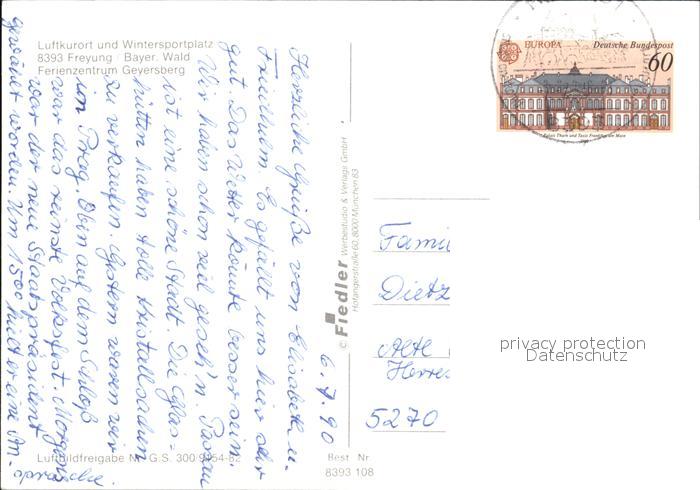 Luftkurort und Wintersportplatz
8393 Freyung · Bayer. Wald
Ferienzentrum Geyersberg
6.7.90
Herzliche Grüße von Elisabeth u.
Friedhelm. Es gefällt uns hier sehr
gut. Das Wetter könnte besser sein.
Wir haben schon viel geseh'n. Passau
ist eine schöne Stadt. Die Glas-
hütten haben tolle Kristallsachen
zu verkaufen. Gestern waren wir
in Prag. Oben auf dem Schloß
war das reinste Volksfest. Morgens
war der neue Staatspräsident
gewählt worden. Um 1500 hielt er eine An-
sprache.
Luftbildfreigabe Nr. G.S. 300/9154-82
Best Nr
8393 108
© Fiedler Werbestudio & Verlags GmbH
Hofangerstraße 60, 8000 München 83
EUROPA Deutsche Bundespost
60
Palais Thurn und Taxis Frankfurt am Main
Fami
Dietz
Alte
Herre
5270
privacy protection
Datenschutz